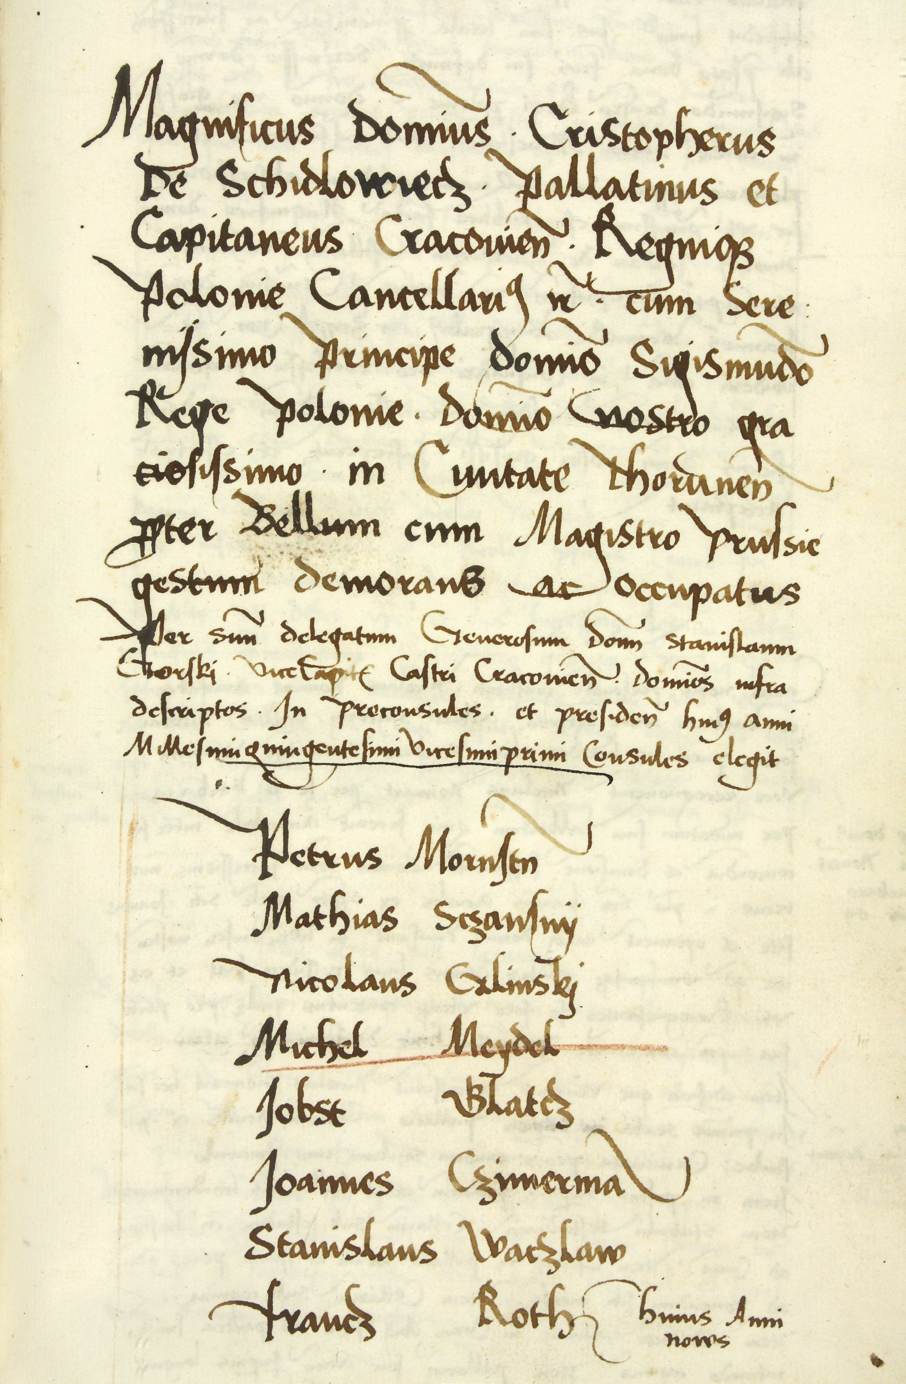 Magnificus Dominus · Cristopherus
De Schidlowiecz · Pallatinus et
Capitaneus Cracovien̄ · Regniqꝫ
Polonie Cancellariꝰ ꝛc · cum Sere
nissimo Principe domīo Sigismūdo
Rege Polonie · domīo Nostro gra
ciosissimo · in Civitate Thorunen̄
ꝓpter Bellum cum Magistro Prussie
gestum demorans ac occupatus
Per suū delegatum Generosum Dom̄ Stanislaum
Gorski · vice Castri Cracovien̄ · domīos infra
descriptos · In preconsules · et presiden̄ huiꝰ anni
Millesimi quingentesimi vicesimi primi Consules elegit
Petrus Mornstn̄
Mathias Sczansnij
Nicolaus Glinskj
Michel Meydel
Jobst Glatcz
Joannes Czimerma
Stanislaus Waczlaw
Francz Roth huius Anni
novus